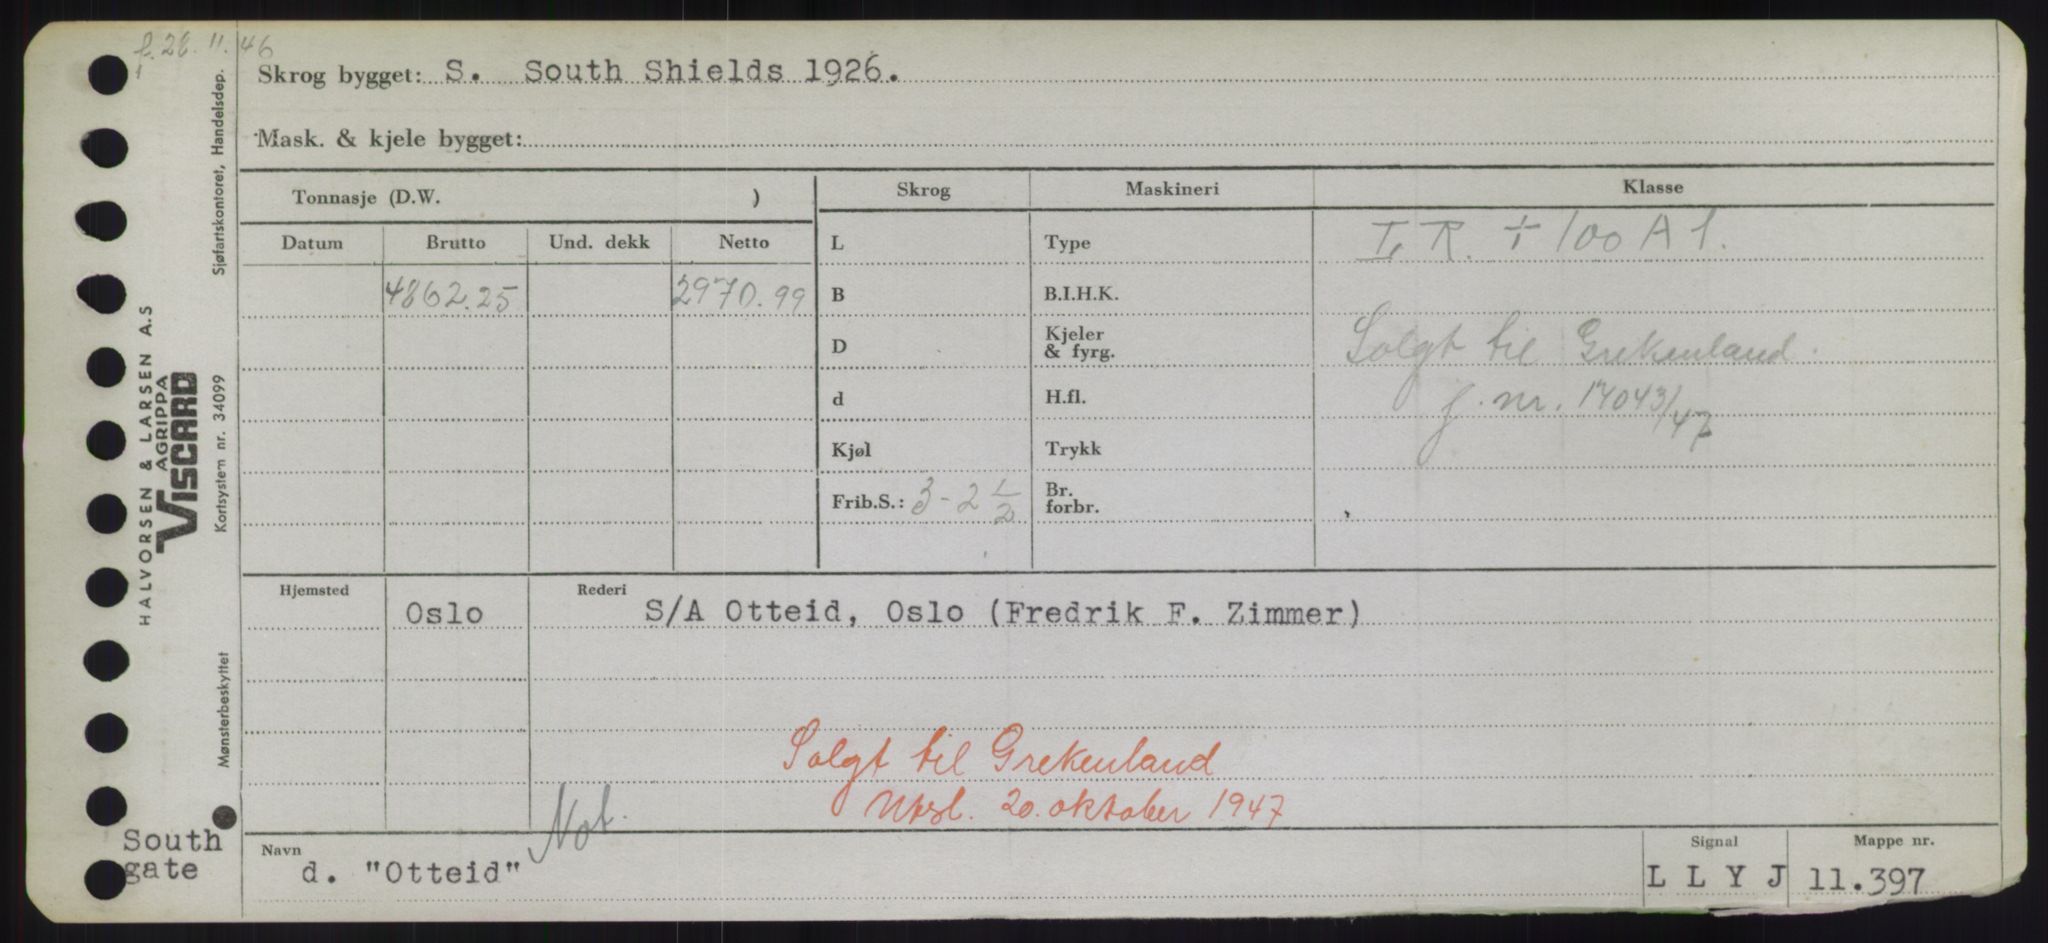 f. 26. 11. 46
Skrog bygget: S. South Shields 1926.
Mask. & kjele bygget:
Tonnasje (D.W. )
Skrog Maskineri Klasse
Datum Brutto Und. dekk Netto
L Type L R. + 100 A 1.
4862.25 2970.99 B B.I.H.K.
D Kjeler & fyrg. Solgt til Grekenland.
d H.fl. J. nr. 17043/47
Kjøl Trykk
Frib.S.: 3-2 1/2 Br. forbr.
Hjemsted Rederi
Oslo S/A Otteid, Oslo (Fredrik F. Zimmer)
Solgt til Grekenland
Utsl. 20. oktober 1947
Not.
Navn Signal Mappe nr.
d. "Otteid" L L Y J 11.397
South
gate
HALVORSEN & LARSEN A.S
AGRIPPA
VISCARD
Mønsterbeskyttet Kortsystem nr. 34099 Sjøfartskontoret, Handelsdep.